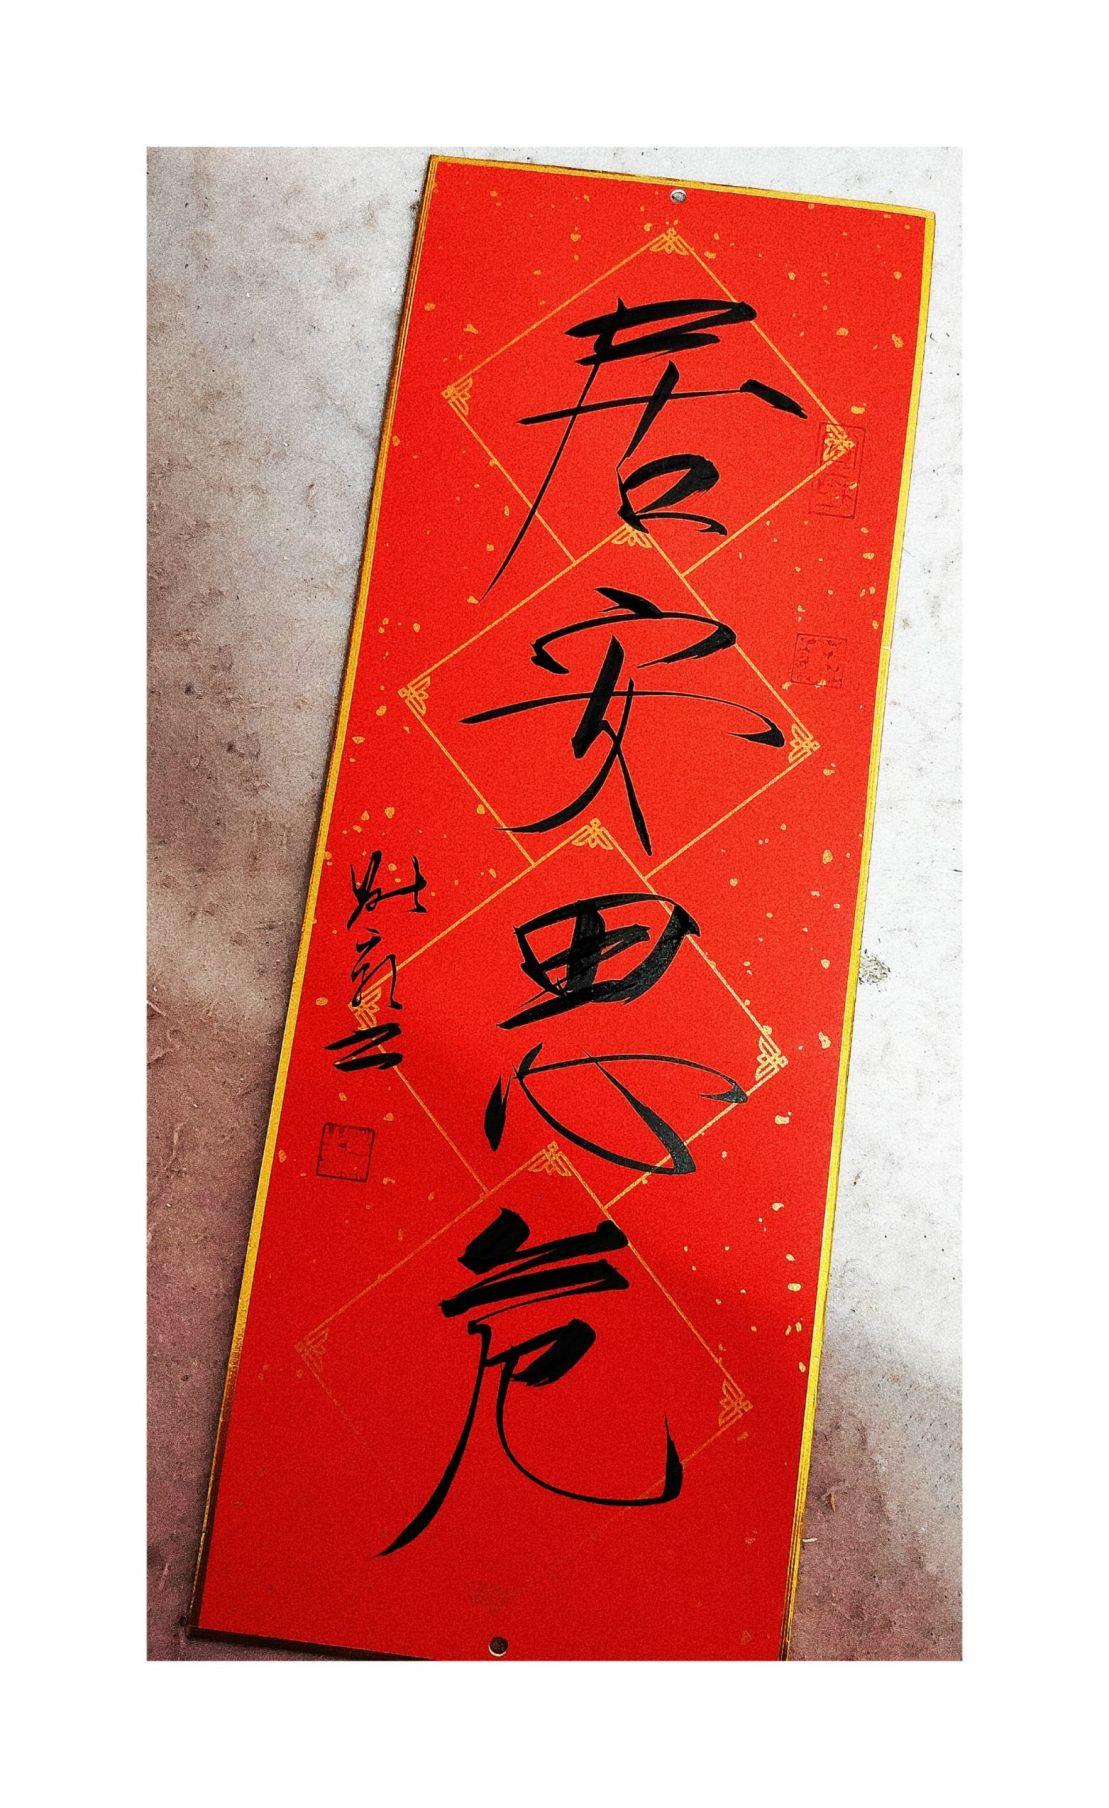 居安思危